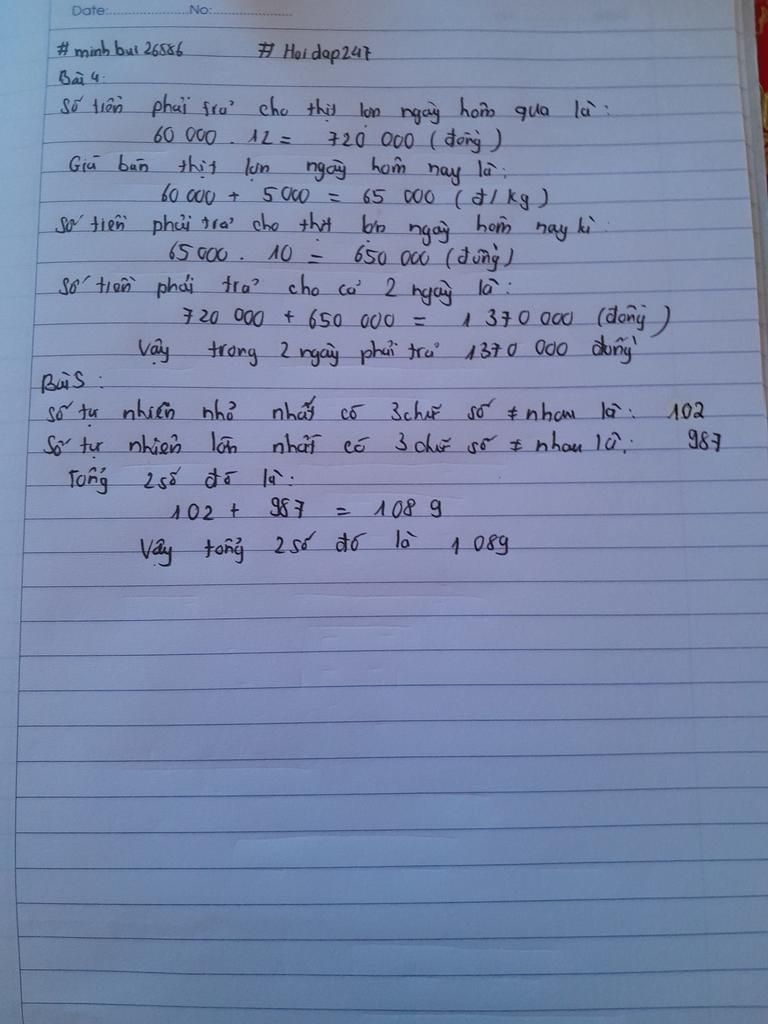 Date:........................No:........................
# minh bui 26586 # Hoidap247
Bài 4:
Số tiền phải trả cho thịt lợn ngày hôm qua là:
60 000 . 12 = 720 000 (đồng)
Giá bán thịt lợn ngày hôm nay là:
60 000 + 5 000 = 65 000 (đ/kg)
Số tiền phải trả cho thịt lợn ngày hôm nay là:
65 000 . 10 = 650 000 (đồng)
Số tiền phải trả cho cả 2 ngày là:
720 000 + 650 000 = 1 370 000 (đồng)
Vậy trong 2 ngày phải trả 1 370 000 đồng
Bài 5:
Số tự nhiên nhỏ nhất có 3 chữ số ≠ nhau là: 102
Số tự nhiên lớn nhất có 3 chữ số ≠ nhau là: 987
Tổng 2 số đó là:
102 + 987 = 1089
Vậy tổng 2 số đó là 1 089